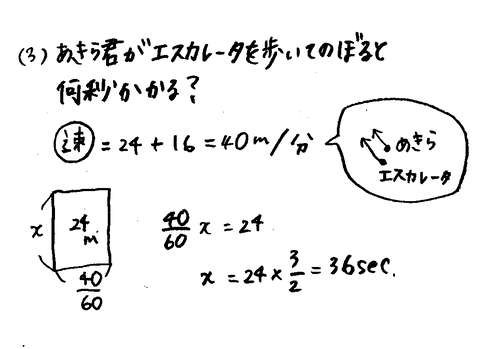 (3) あきら君がエスカレータを歩いてのぼると
何秒かかる？
速 = 24 + 16 = 40m/分
あきら
エスカレータ
x
24
m
40/60
40/60 x = 24
x = 24 × 3/2 = 36sec.